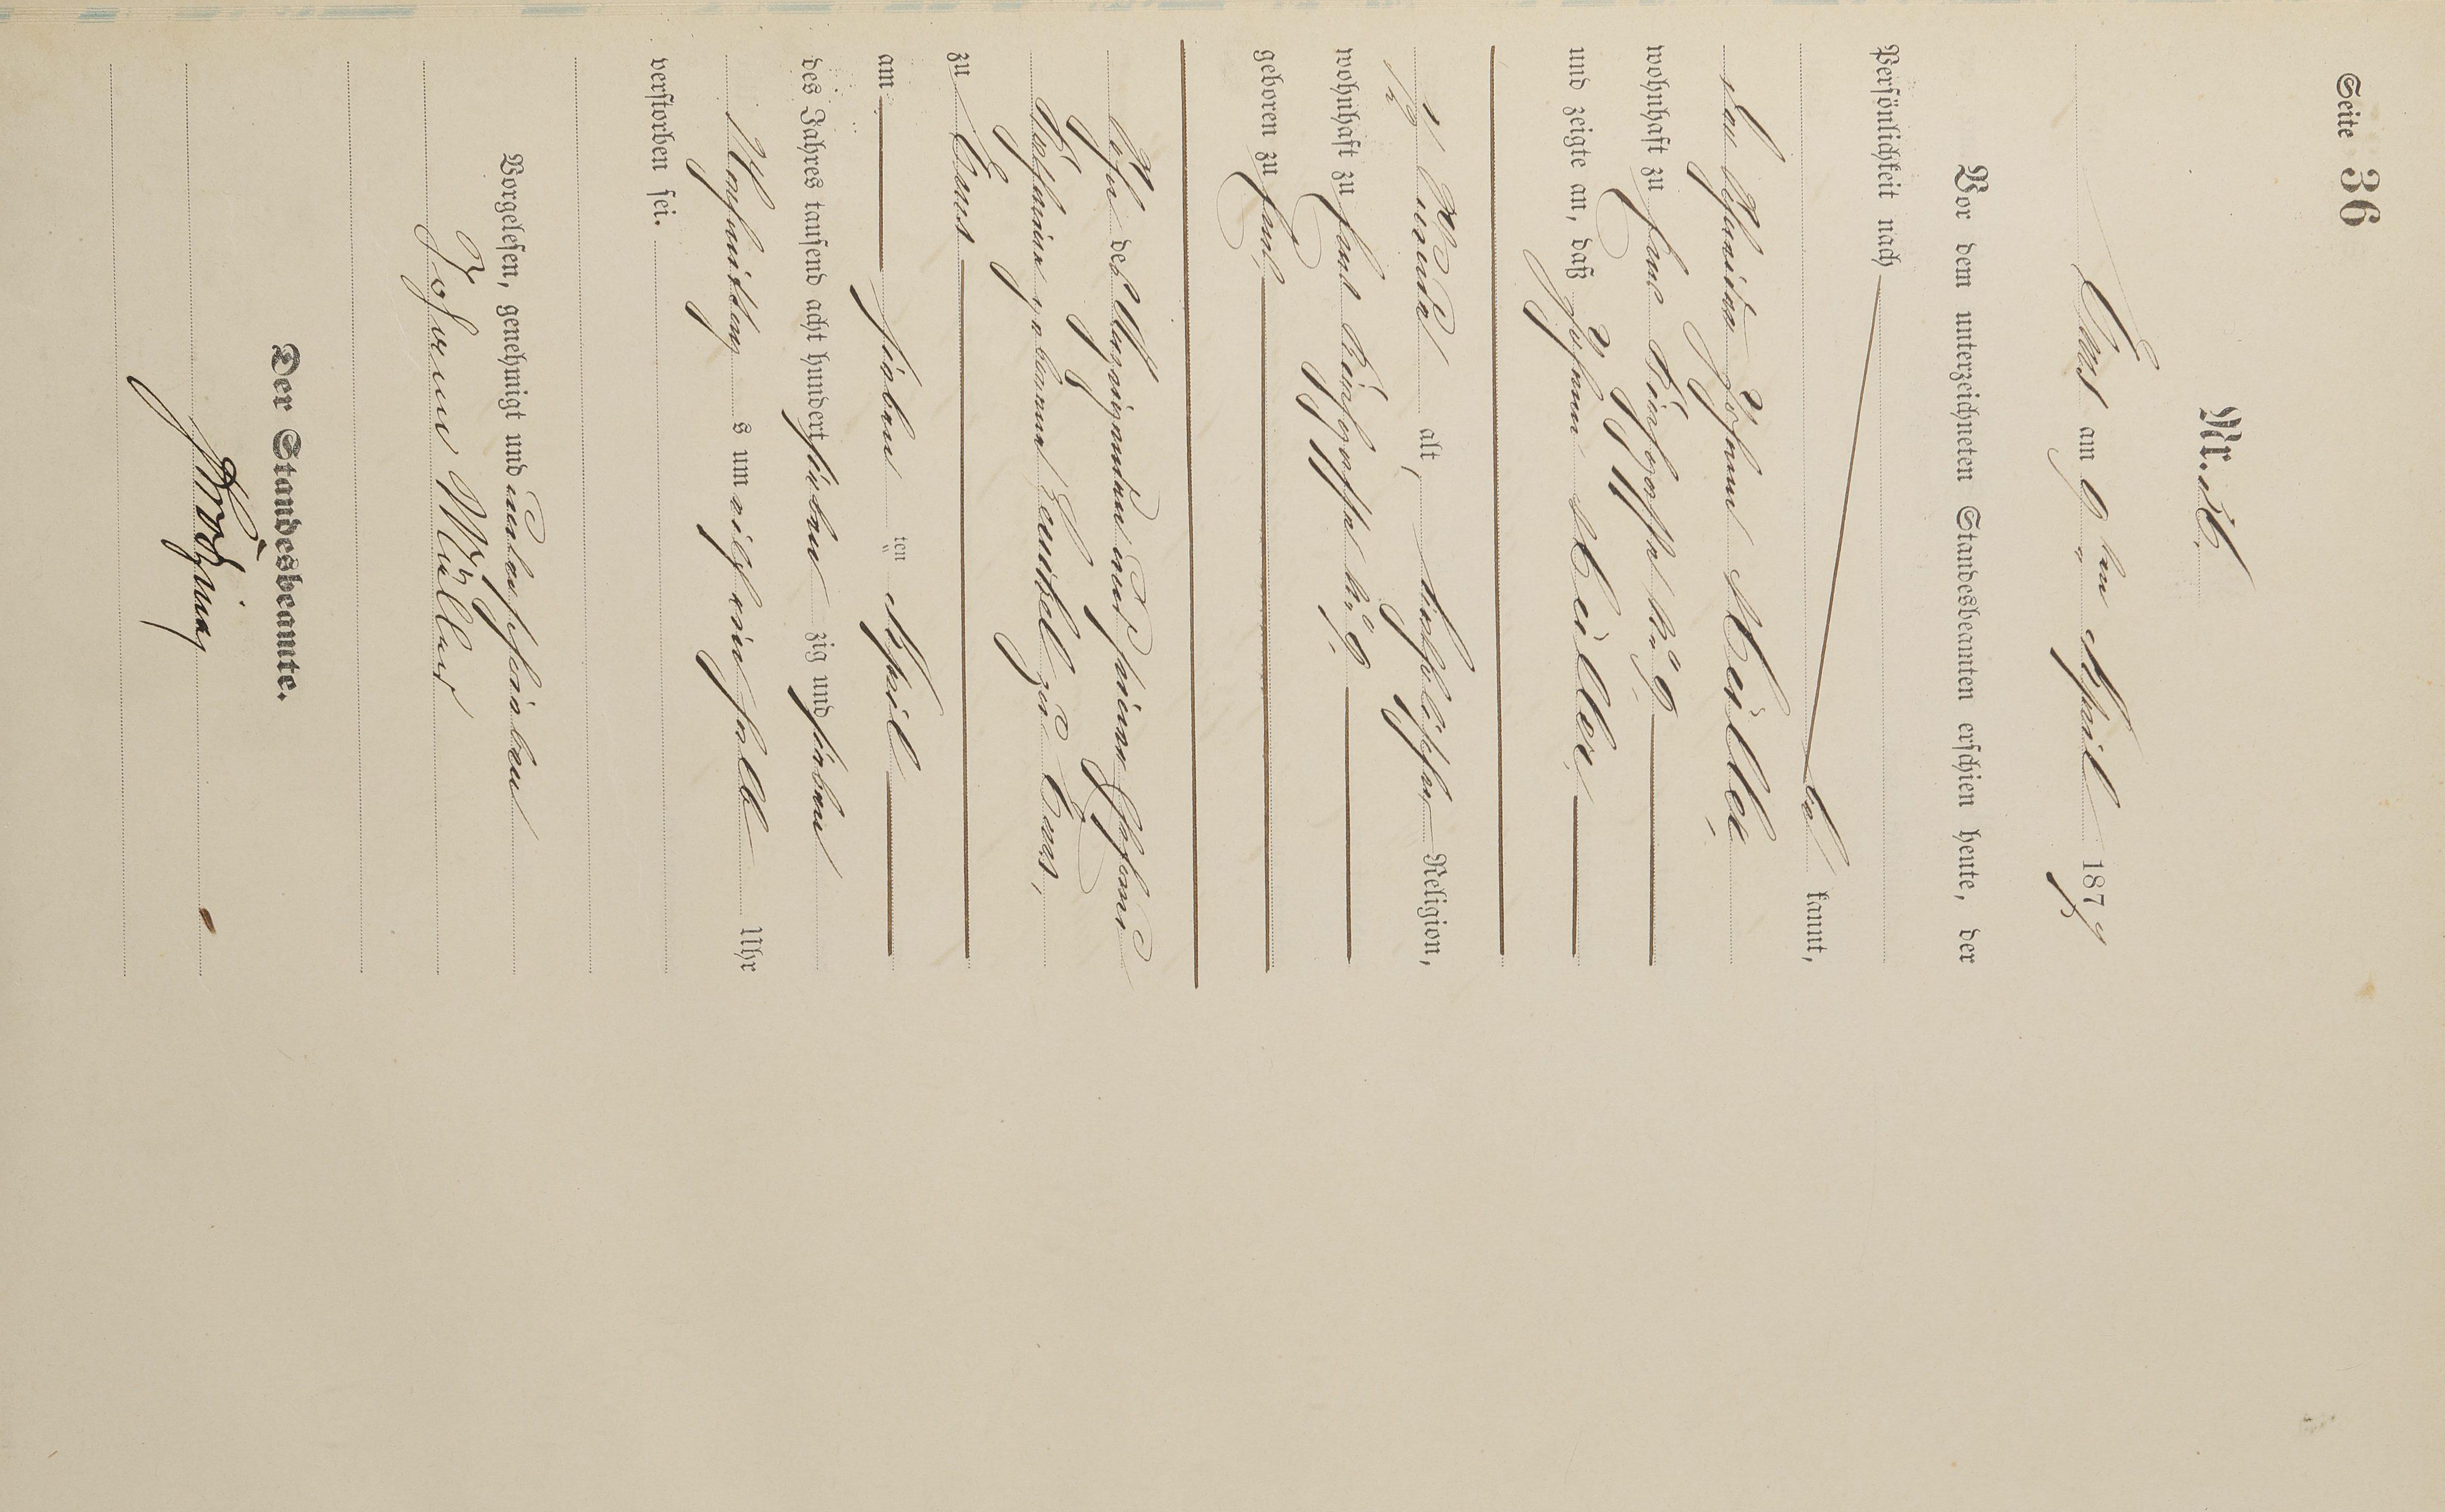 Seite 36
Nr. 36.
Ems am 9 ten April 1879
Vor dem unterzeichneten Standesbeamten erschien heute, der
Persönlichkeit nach
be kannt,
der Schneider Johann Müller,
wohnhaft zu Ems
und zeigte an, daß Johann Müller,
½ Stunde alt, katholischer Religion,
wohnhaft zu Ems
geboren zu Ems,
Sohn des Anzeigenden und seiner Ehefrau
geborenen zu Ems,
zu Ems
am sieben ten April
des Jahres tausend acht hundert sieben zig und
Nachmittags um ein halb Uhr
verstorben sei.
Vorgelesen, genehmigt und unterschrieben
Johann Müller
Der Standesbeamte.